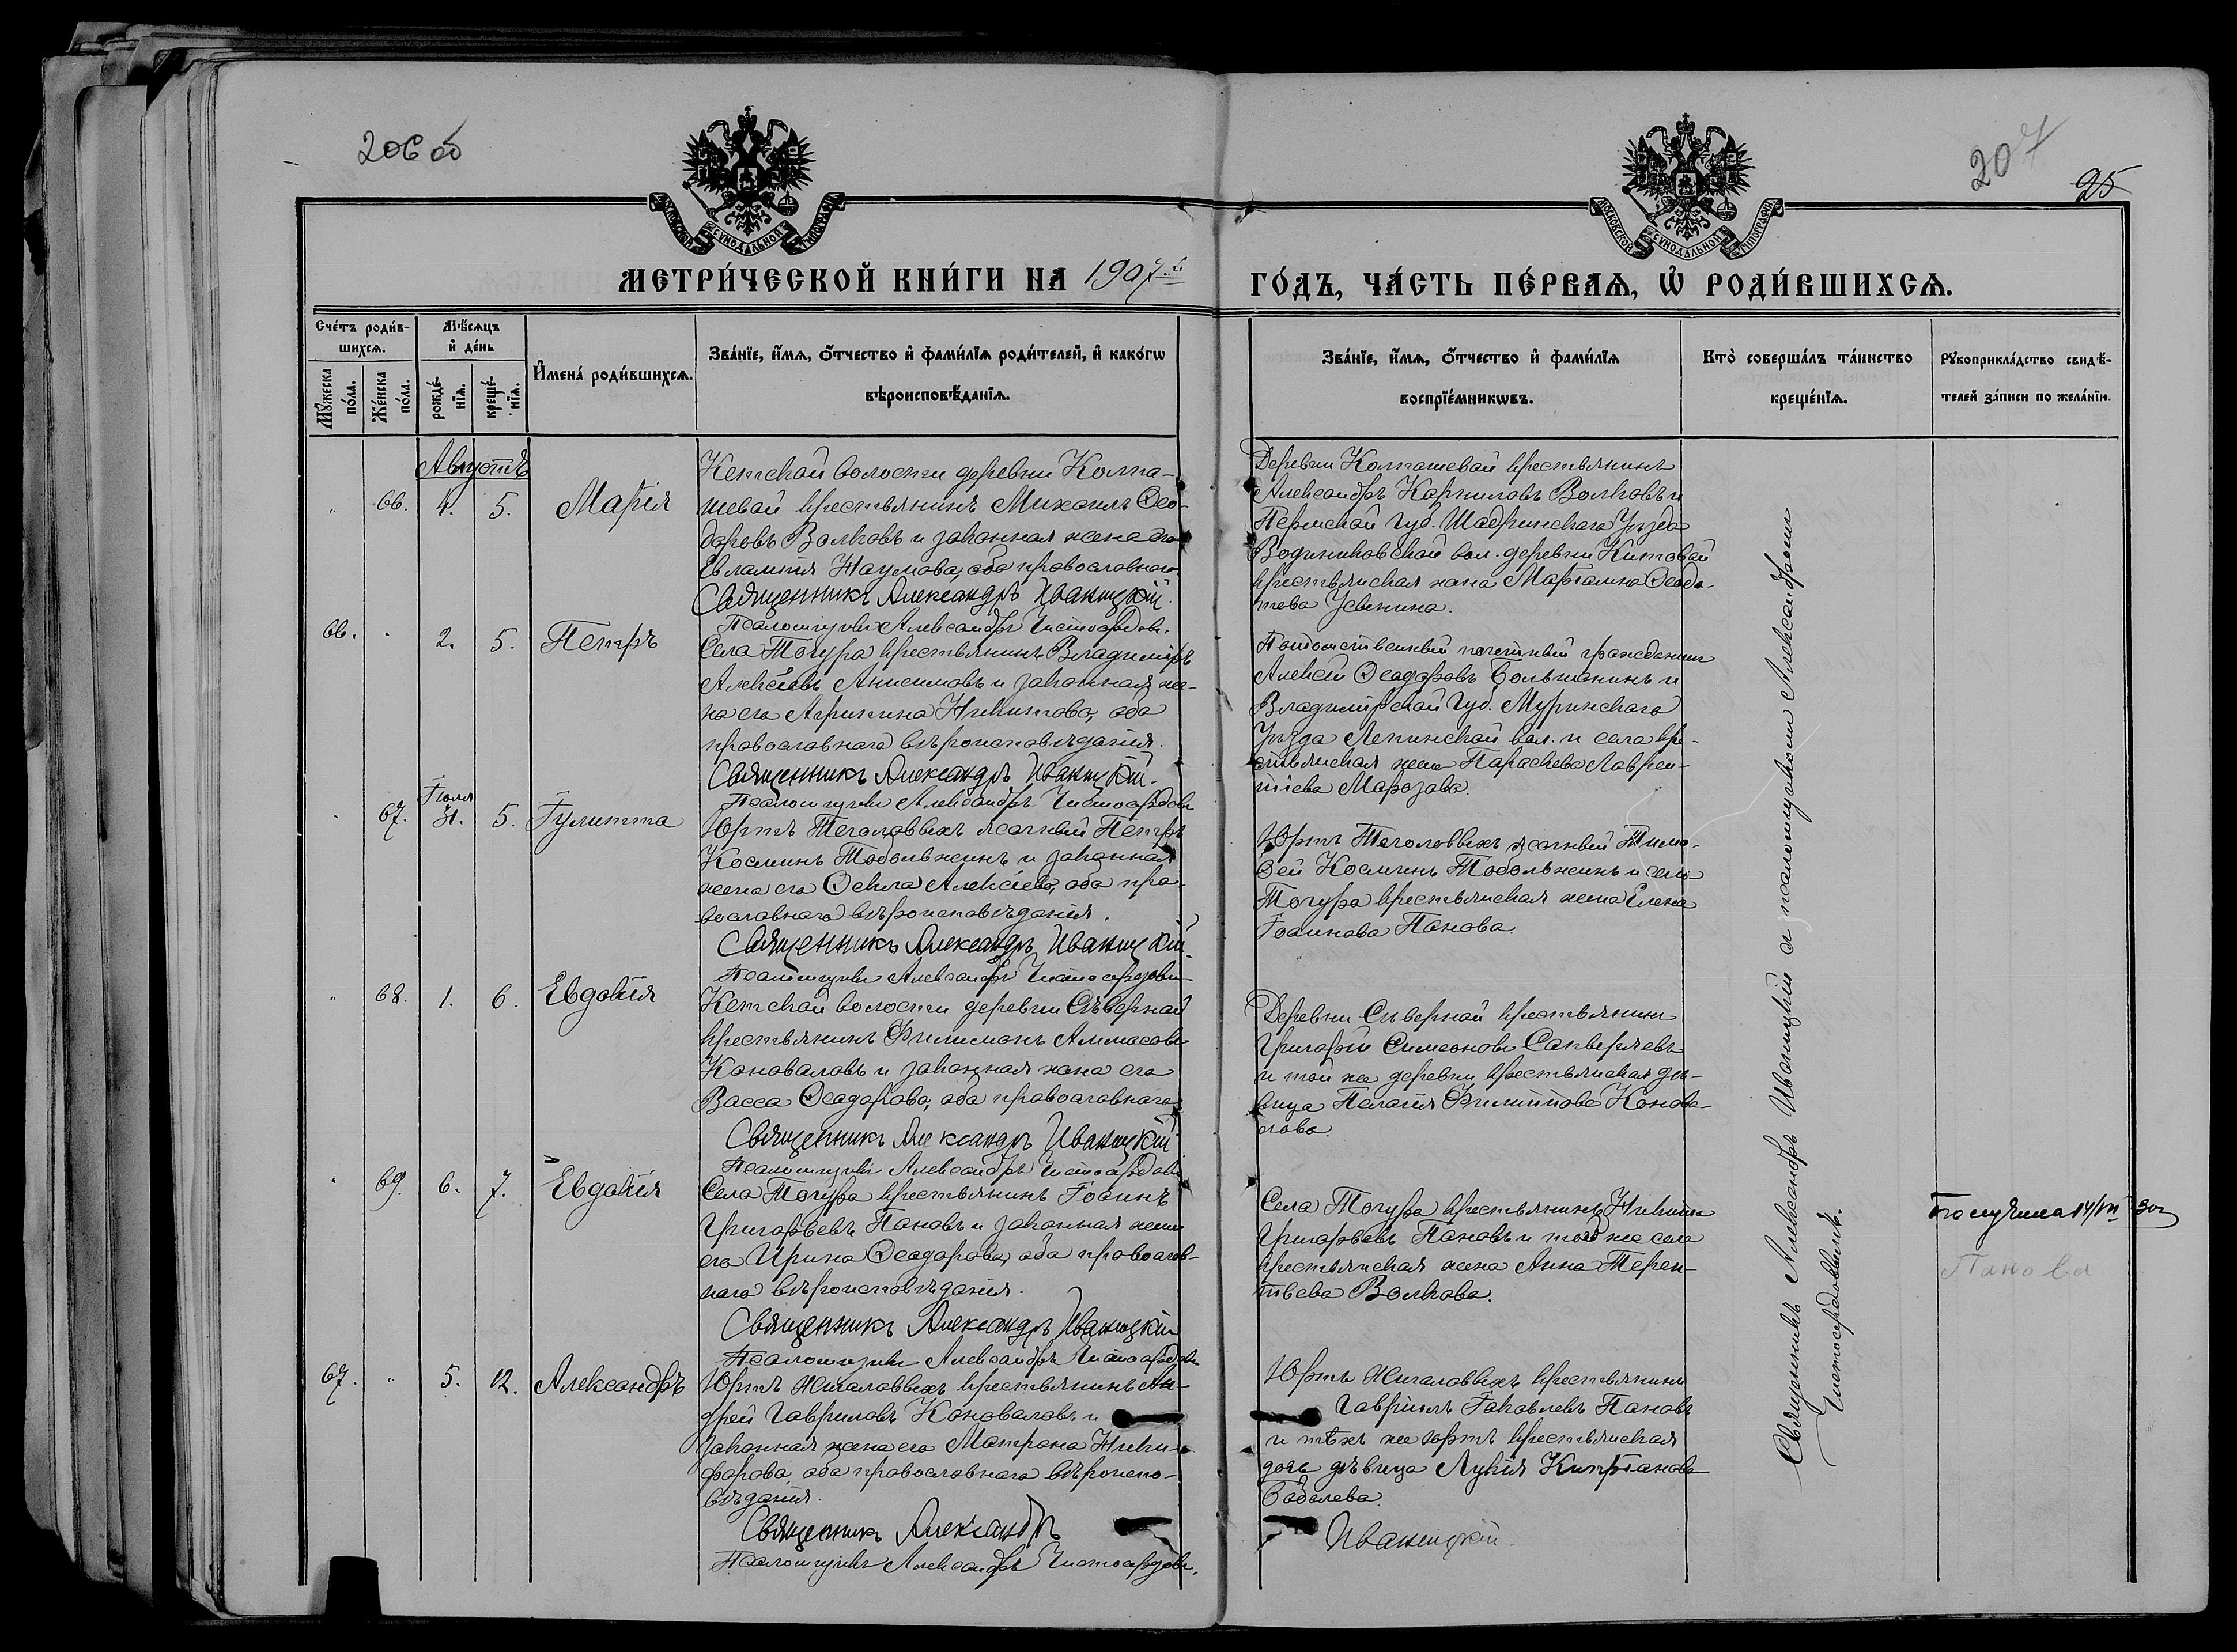 206 об
207
25
МОСКОВСКОЙ СУНОДАЛЬНОЙ ТИПОГРАФІИ
МОСКОВСКОЙ СУНОДАЛЬНОЙ ТИПОГРАФІИ
МЕТРИ́ЧЕСКОЙ КНИ́ГИ НА 1907й
ГО́ДЪ, ЧА́СТЬ ПЕ́РВАЯ, Ѡ҆ РОДИ́ВШИХСЯ.
Сче́тъ роди́в-
шихся.
Мѣ́сяцъ
и҆ де́нь
Мꙋ́жеска
по́ла.
Же́нска
по́ла.
рожде́-
нїя.
креще́-
нїя.
И҆мена́ роди́вшихся.
Зва́нїе, и҆́мя, ѻ҆́тчество и҆ фами́лїя роди́телей, и҆ како́гѡ
вѣроисповѣ́данїя.
Зва́нїе, и҆́мя, ѻ҆́тчество и҆ фами́лїя
воспрїе́мникѡвъ.
Кто̀ соверша́лъ та́инство
креще́нїя.
Рꙋкоприкла́дство свидѣ́-
телей за́писи по жела́нїю.
Августъ
66. 4. 5. Марія
Кетской волости деревни Колпа-
шевой крестьянинъ Михаилъ Ѳео-
доровъ Волковъ и законная жена его
Евлампія Наумова, оба православнаго.
Священникъ Александръ Иваницкій.
Псаломщикъ Александръ Чистосердовъ.
Деревни Колпашевой крестьянинъ
Александръ Карниловъ Волковъ и
Пермской Губ. Шадринскаго Уѣзда
вол. деревни Китовой
крестьянская жена Ѳеодо-
това
66. 2. 5. Петръ
Села Тогура крестьянинъ Владиміръ
Алексѣевъ Анисимовъ и законная же-
на его Агрипина Никитова, оба
православнаго вѣроисповѣданія.
Священникъ Александръ Иваницкій.
Псаломщикъ Александръ Чистосердовъ
Потомственный почетный гражданинъ
Алексѣй Ѳеодоровъ Большанинъ и
Владимірской Губ. Муринскаго
Уѣзда Лепинской вол. и села кре-
стьянская жена Параскева Лаврен-
тіева Марозова.
Іюля
67. 5. Іулитта
Юртъ Теголовыхъ ясачный Петръ
Косминъ Тобольжинъ и законная
жена его Ѳекла Алексѣева, оба пра-
вославнаго вѣроисповѣданія.
Священникъ Александръ Иваницкій.
Псаломщикъ Александръ Чистосердовъ
Юртъ Теголовыхъ ясачный Тимо-
ѳей Косминъ Тобольжинъ и села
Тогура крестьянская жена Елена
Іоаннова Панова.
68. 1. 6. Евдокія
Кетской волости деревни Сѣверной
крестьянинъ Филимонъ
Коноваловъ и законная жена его
Васса Ѳеодорова, оба православнаго
Священникъ Александръ Иваницкій
Псаломщикъ Александръ Чистосердовъ
Деревни Сѣверной крестьянинъ
Григорій Симеоновъ
и той же деревни крестьянская дѣ-
вица Пелагія Филиппова Конова-
лова.
69. 6. 7. Евдокія
Села Тогура крестьянинъ Іоаннъ
Григорьевъ Пановъ и законная жена
его Ирина Ѳеодорова, оба православ-
наго вѣроисповѣданія.
Священникъ Александръ Иваницкій
Псаломщикъ Александръ Чистосердовъ
Села Тогура крестьянинъ Никита
Григорьевъ Пановъ и того же села
крестьянская жена Анна Терен-
тьева Волкова.
Получила 14/VII 30г
Панова
67. 5. 12. Александръ
Юртъ Жигаловыхъ крестьянинъ Ан-
дрей Гавриловъ Коноваловъ и
законная жена его Матрона Ники-
форова, оба православнаго вѣроиспо-
вѣданія.
Священникъ Александръ Иваницкій
Псаломщикъ Александръ Чистосердовъ.
Юртъ Жигаловыхъ крестьянинъ
Гавріилъ Іаковлевъ Пановъ
и тѣхъ же юртъ крестьянская
дочь дѣвица Лукія Кипріанова
Священникъ Александръ Иваницкій и псаломщикомъ Александромъ
Чистосердовымъ.